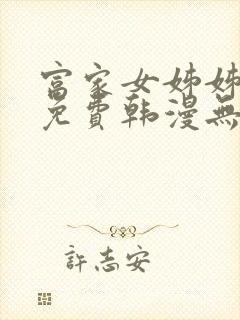 富家女姊姊
免費韩漫無
許志安